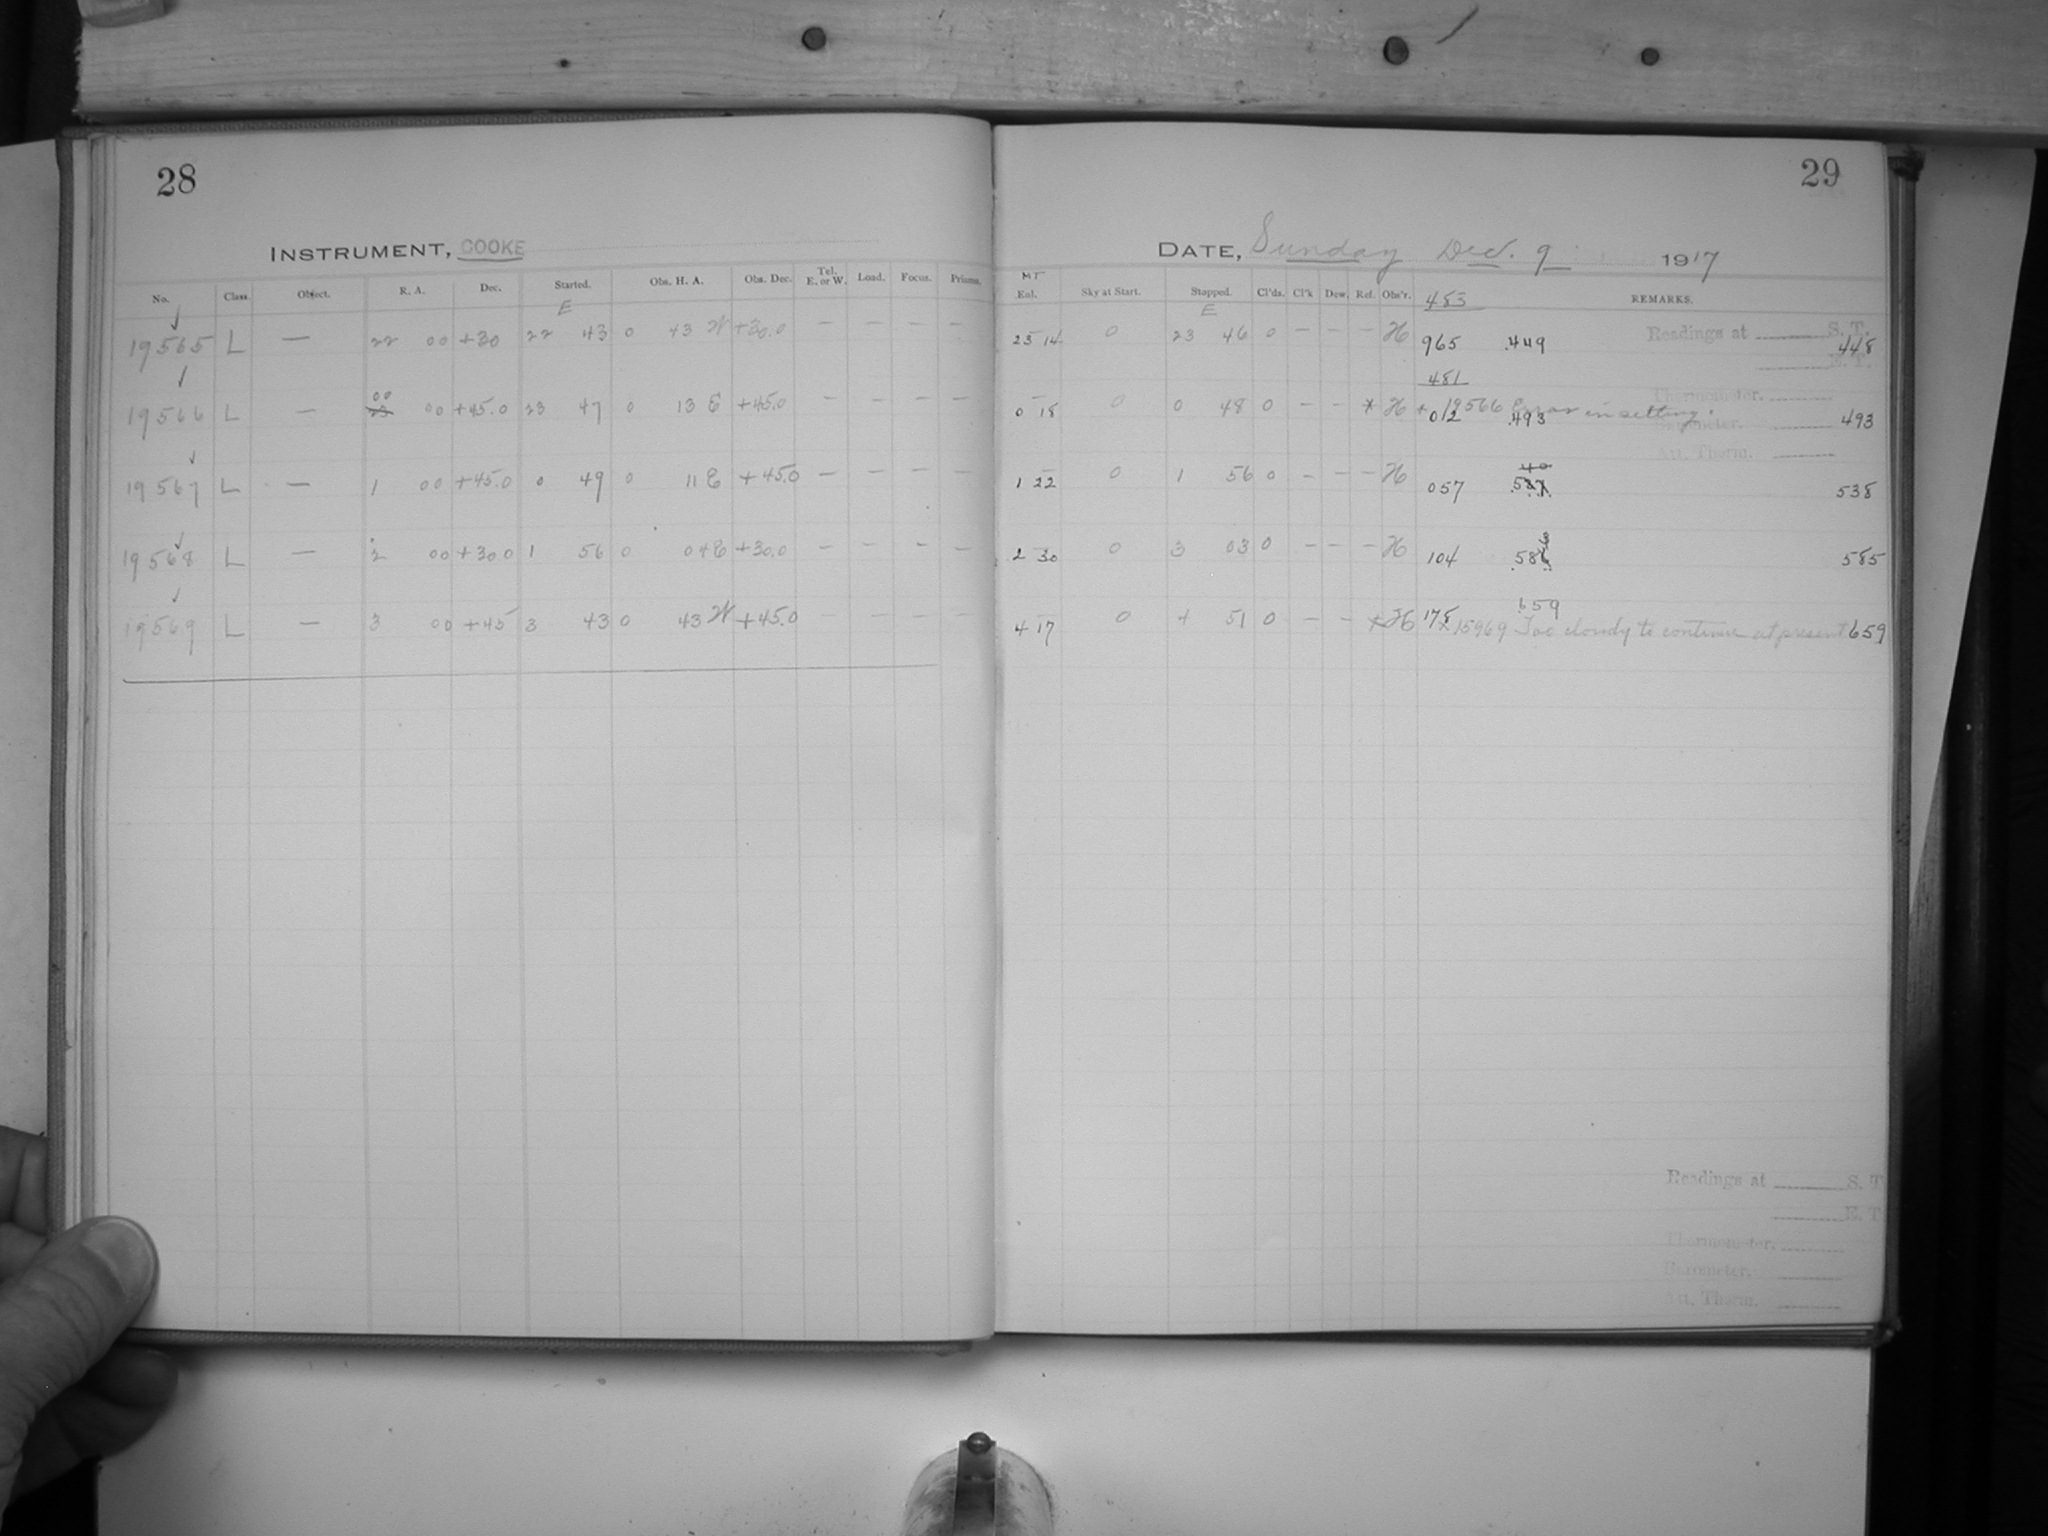 28
INSTRUMENT, COOKE
No. Class. Object. R. A. Dec. Started. Obs. H. A. Obs. Dec. Tel. E. or W. Load. Focus. Prisms.
E
19565 L — 22 00 +30 22 43 0 43 W +30.0 — — — —
00
19566 L — 23 00 +45.0 23 47 0 13 E +45.0 — — — —
19567 L — 1 00 +45.0 0 49 0 11 E +45.0 — — — —
19568 L — 2 00 +30.0 1 56 0 04 E +30.0 — — — —
19569 L — 3 00 +45 3 43 0 43 W +45.0 — — —
29
DATE, Sunday Dec. 9 1917
MT
Enl. Sky at Start. Stopped. Cl'ds. Cl'k Dew. Ref. Obs'r. 453 REMARKS.
E
Readings at S. T.
23 14 0 23 46 0 — — — H 965 .449 448
E. T.
481
Thermometer.
0 18 0 0 48 0 — — * H * 19566 Error in setting.
012 .493 493
Barometer.
Att. Therm.
40
1 22 0 1 56 0 — — — H 057 .537 538
3
2 30 0 3 03 0 — — — H 104 .586 585
.659
4 17 0 4 51 0 — — * H 178
* 15969 Too cloudy to continue at present 659
Readings at S. T
E. T
Thermometer.
Barometer.
Att. Therm.